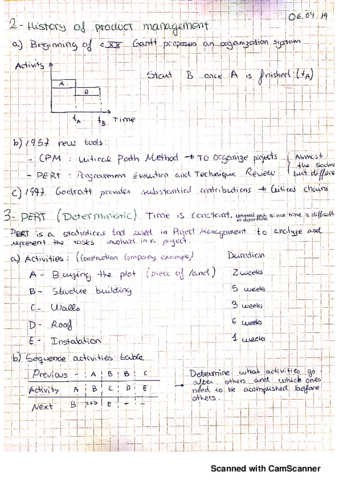 06.04.19
2 - History of product management
a) Beginning of c.XX Gantt proposes an organization system
Activity
A
B
tA tB Time
Start B once A is finished (tA)
b) 1957 new tools:
- CPM : Critical Path Method → To organize projects
- PERT : Programmem Evaluation and Technique Review
Almost the same but
c) 1997 Goldratt provides substantial contributions → Critical chains
3- PERT (Deterministic) Time is constant, since time is difficult
PERT is a statistical tool used in Project Management to analyze and
represent the tasks involved in a project.
a) Activities: (Construction Company example) Duration
A - Buying the plot (piece of land) 2 weeks
B - Structure building 5 weeks
C - Walls 3 weeks
D - Roof 6 weeks
E - Instalation 1 weeks
b) Sequence activities table
Previous - A B B C
Activity A B C D E
Next B C+D E - -
→ Determine what activities go
after others and which ones
need to be acomplished before
others.
Scanned with CamScanner